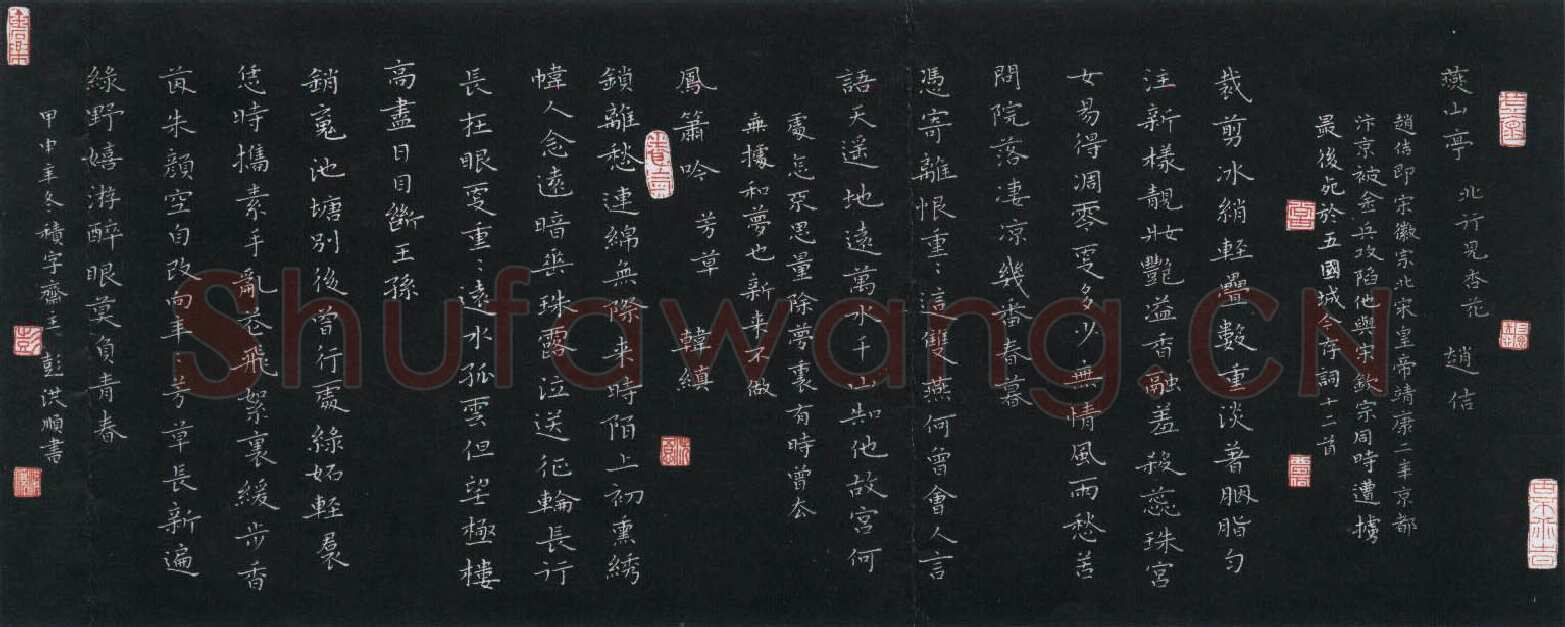 燕山亭 北行見杏花 趙佶
趙佶即宋徽宗北宋皇帝靖康二年京都
汴京被金兵攻陷他與宋欽宗同時遭擄
最後死於五國城今存詞十二首
裁剪冰綃輕疊數重淡著胭脂勻
注新樣靚妝艷溢香融羞殺蕊珠宮
女易得凋零更多少無情風雨愁苦
問院落淒凉幾番春暮
憑寄離恨重:這雙燕何曾會人言
語天遥地遠萬水千山知他故宮何
處怎不思量除夢裏有時曾去
無據和夢也新來不做
鳳簫吟 芳草 韓縝
鎖離愁連綿無際来時陌上初熏綉
幃人念遠暗垂珠露泣送征輪長行
長在眼更重:遠水孤雲但望極樓
高盡日目斷王孫
銷魂池塘別後曾行處綠妬輕裙
恁時攜素手亂花飛絮裏緩步香
茵朱顏空自改向年:芳草長新遍
綠野嬉游醉眼莫負青春
甲申年冬積字齋主彭洪順書
Shufawang.CN